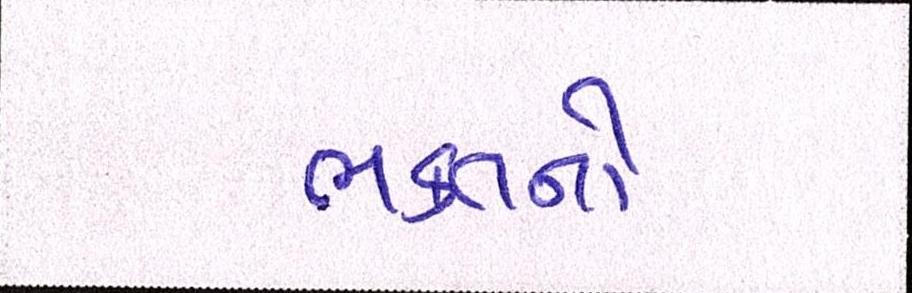 ભક્તનો